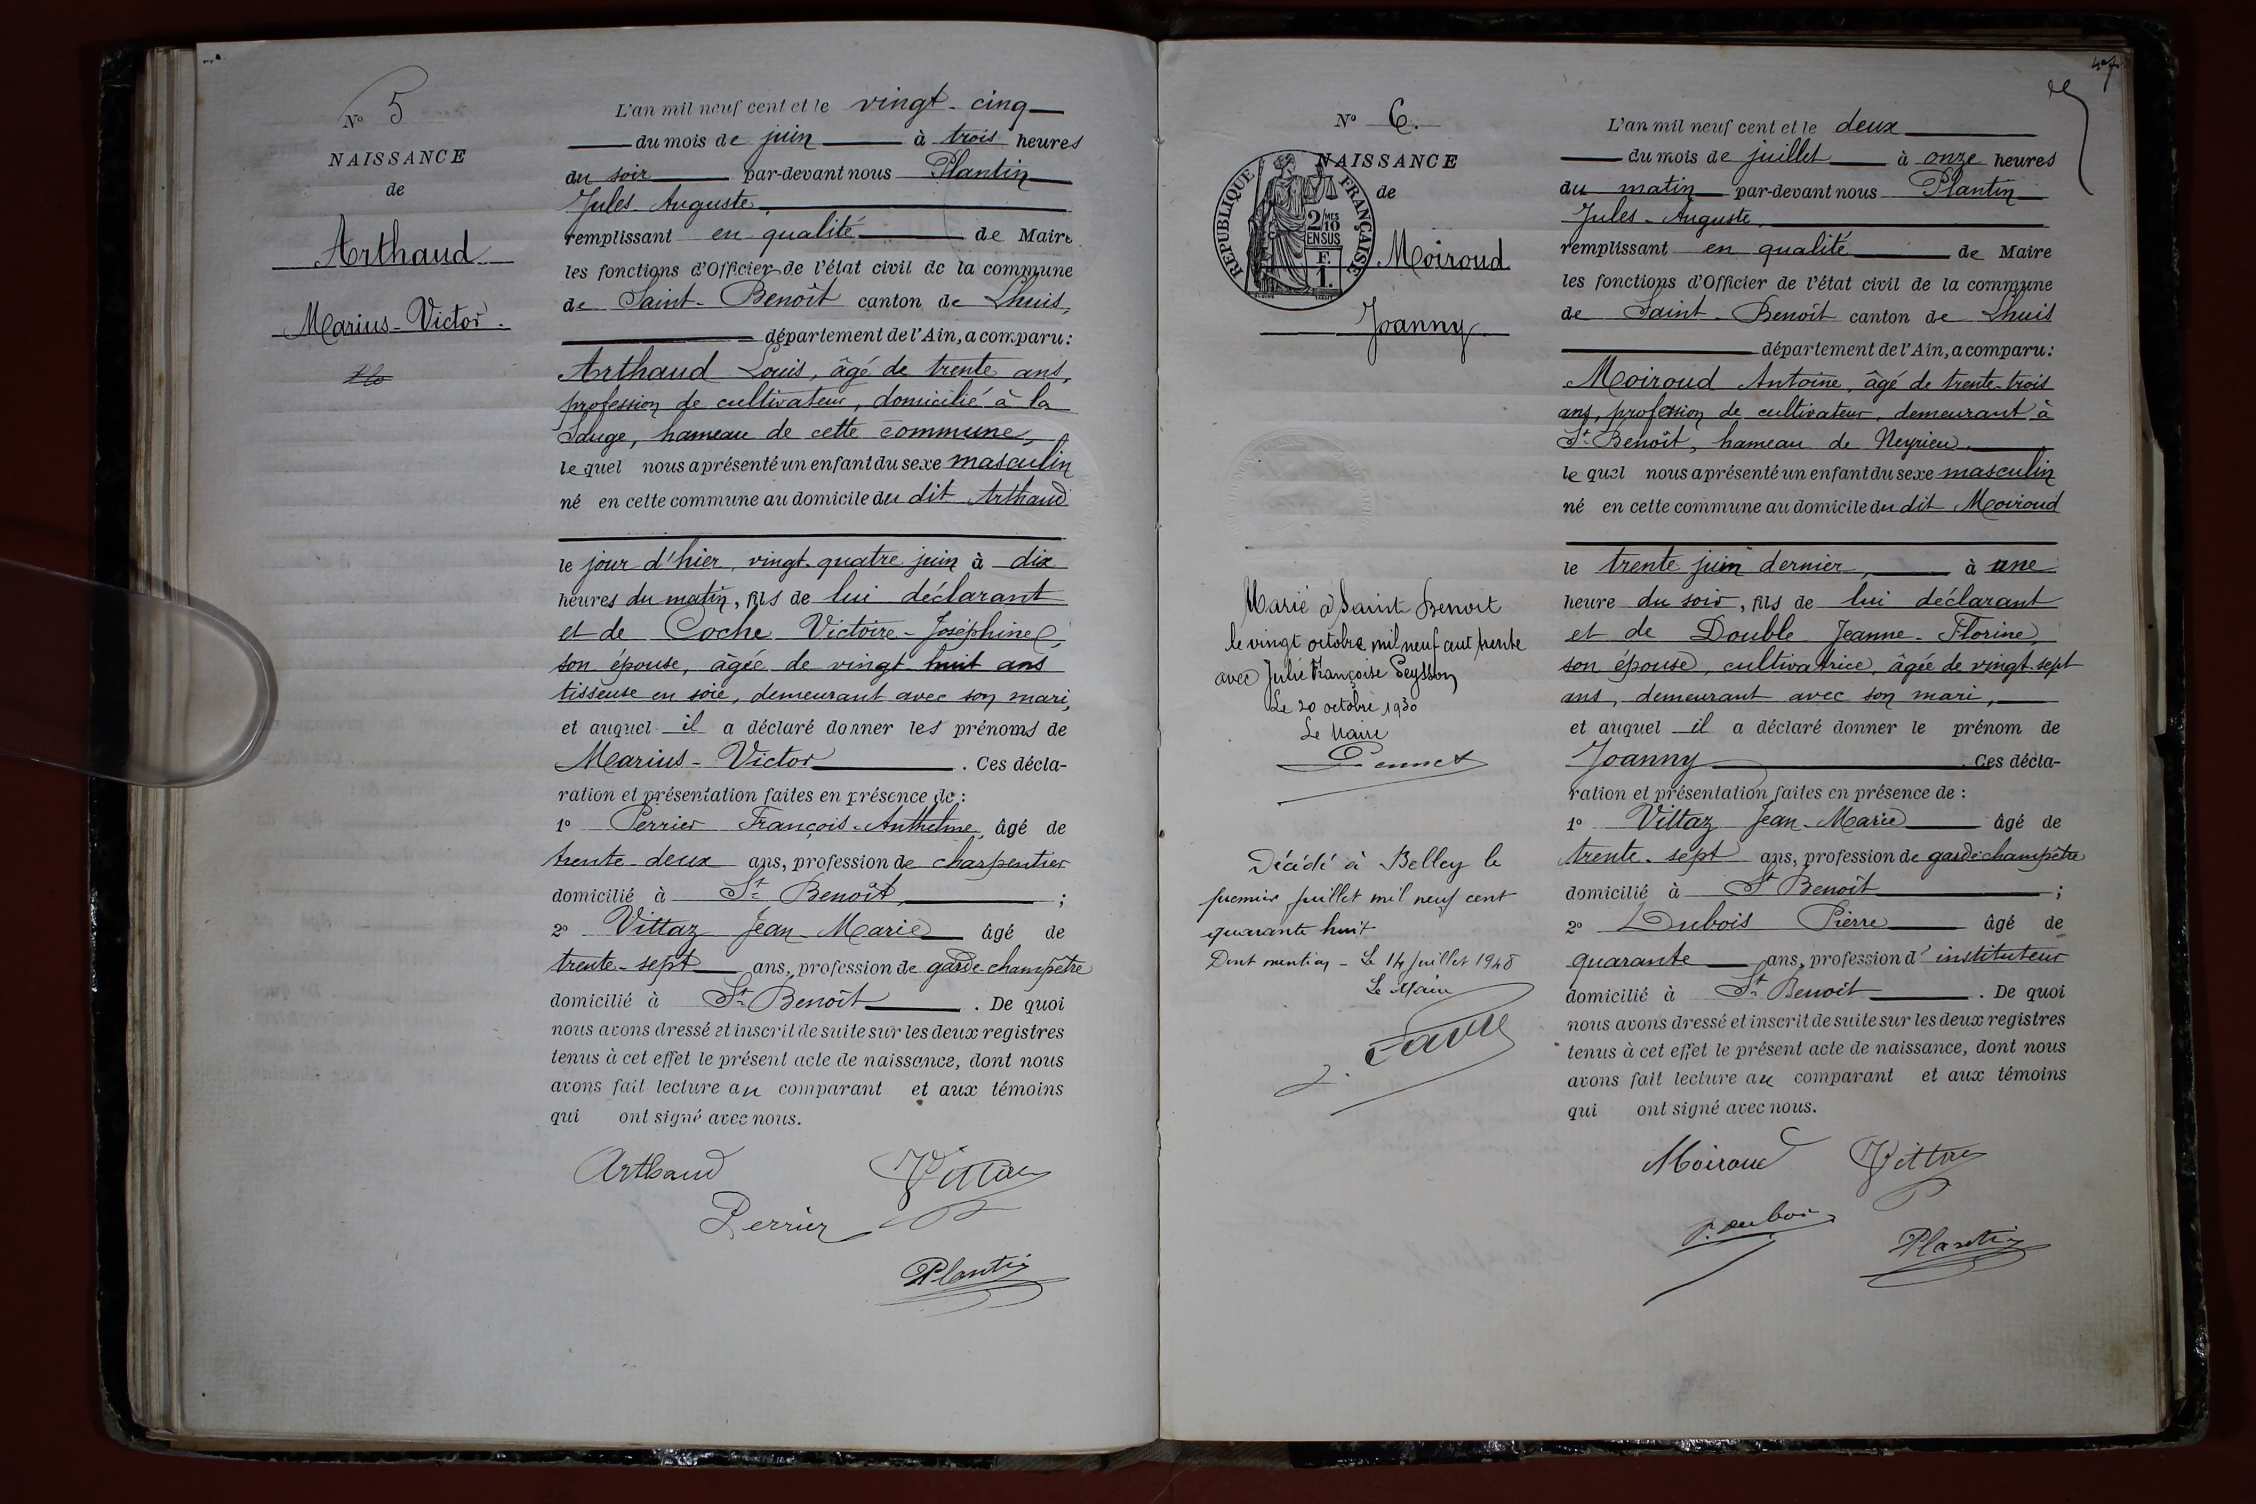 N° 5
NAISSANCE
de
Arthaud
Marius-Victor.
L'an mil neuf cent et le vingt-cinq
du mois de juin à trois heures
du soir par-devant nous Plantin
Jules Auguste,
remplissant en qualité de Maire
les fonctions d'Officier de l'état civil de la commune
de Saint-Benoît canton de Lhuis,
département de l'Ain, a comparu :
Arthaud Louis, âgé de trente ans,
profession de cultivateur, domicilié à la
Sauge, hameau de cette commune,
lequel nous a présenté un enfant du sexe masculin
né en cette commune au domicile du dit Arthaud
le jour d'hier, vingt-quatre juin à dix
heures du matin, fils de lui déclarant
et de Coche Victoire-Joséphine,
son épouse, âgée de vingt huit ans
tisseuse en soie, demeurant avec son mari,
et auquel il a déclaré donner les prénoms de
Marius-Victor. Ces décla-
ration et présentation faites en présence de :
1° Perrier François-Anthelme, âgé de
trente-deux ans, profession de charpentier
domicilié à St Benoît, ;
2° Vittaz Jean-Marie âgé de
trente-sept ans, profession de garde-champêtre
domicilié à St Benoît. De quoi
nous avons dressé et inscrit de suite sur les deux registres
tenus à cet effet le présent acte de naissance, dont nous
avons fait lecture au comparant et aux témoins
qui ont signé avec nous.
Arthaud Vittaz
Perrier
Plantin
47
N° 6.
NAISSANCE
de
RÉPUBLIQUE FRANÇAISE
2/10MES
EN SUS
F.
1.
Moiroud
Joanny
Marié à Saint-Benoit
le vingt octobre mil neuf cent trente
avec Julie Françoise Peysson
Le 20 octobre 1930
Le Maire
Décédé à Belley le
premier juillet mil neuf cent
quarante huit
Dont mention - Le 14 juillet 1948
Le Maire
J. Favre
L'an mil neuf cent et le deux
du mois de juillet à onze heures
du matin par-devant nous Plantin
Jules-Auguste,
remplissant en qualité de Maire
les fonctions d'Officier de l'état civil de la commune
de Saint-Benoît canton de Lhuis
département de l'Ain, a comparu :
Moiroud Antoine, âgé de trente-trois
ans, profession de cultivateur, demeurant à
St Benoît, hameau de Neyrieu,
lequel nous a présenté un enfant du sexe masculin
né en cette commune au domicile du dit Moiroud
le trente juin dernier, à une
heure du soir, fils de lui déclarant
et de Double Jeanne-Florine,
son épouse, cultivatrice, âgée de vingt-sept
ans, demeurant avec son mari,
et auquel il a déclaré donner le prénom de
Joanny. Ces décla-
ration et présentation faites en présence de :
1° Vittaz Jean-Marie âgé de
trente-sept ans, profession de garde champêtre
domicilié à St Benoît ;
2° Dubois Pierre âgé de
quarante ans, profession d'instituteur
domicilié à St Benoît. De quoi
nous avons dressé et inscrit de suite sur les deux registres
tenus à cet effet le présent acte de naissance, dont nous
avons fait lecture au comparant et aux témoins
qui ont signé avec nous.
Moiroud Vittaz
P. Dubois
Plantin